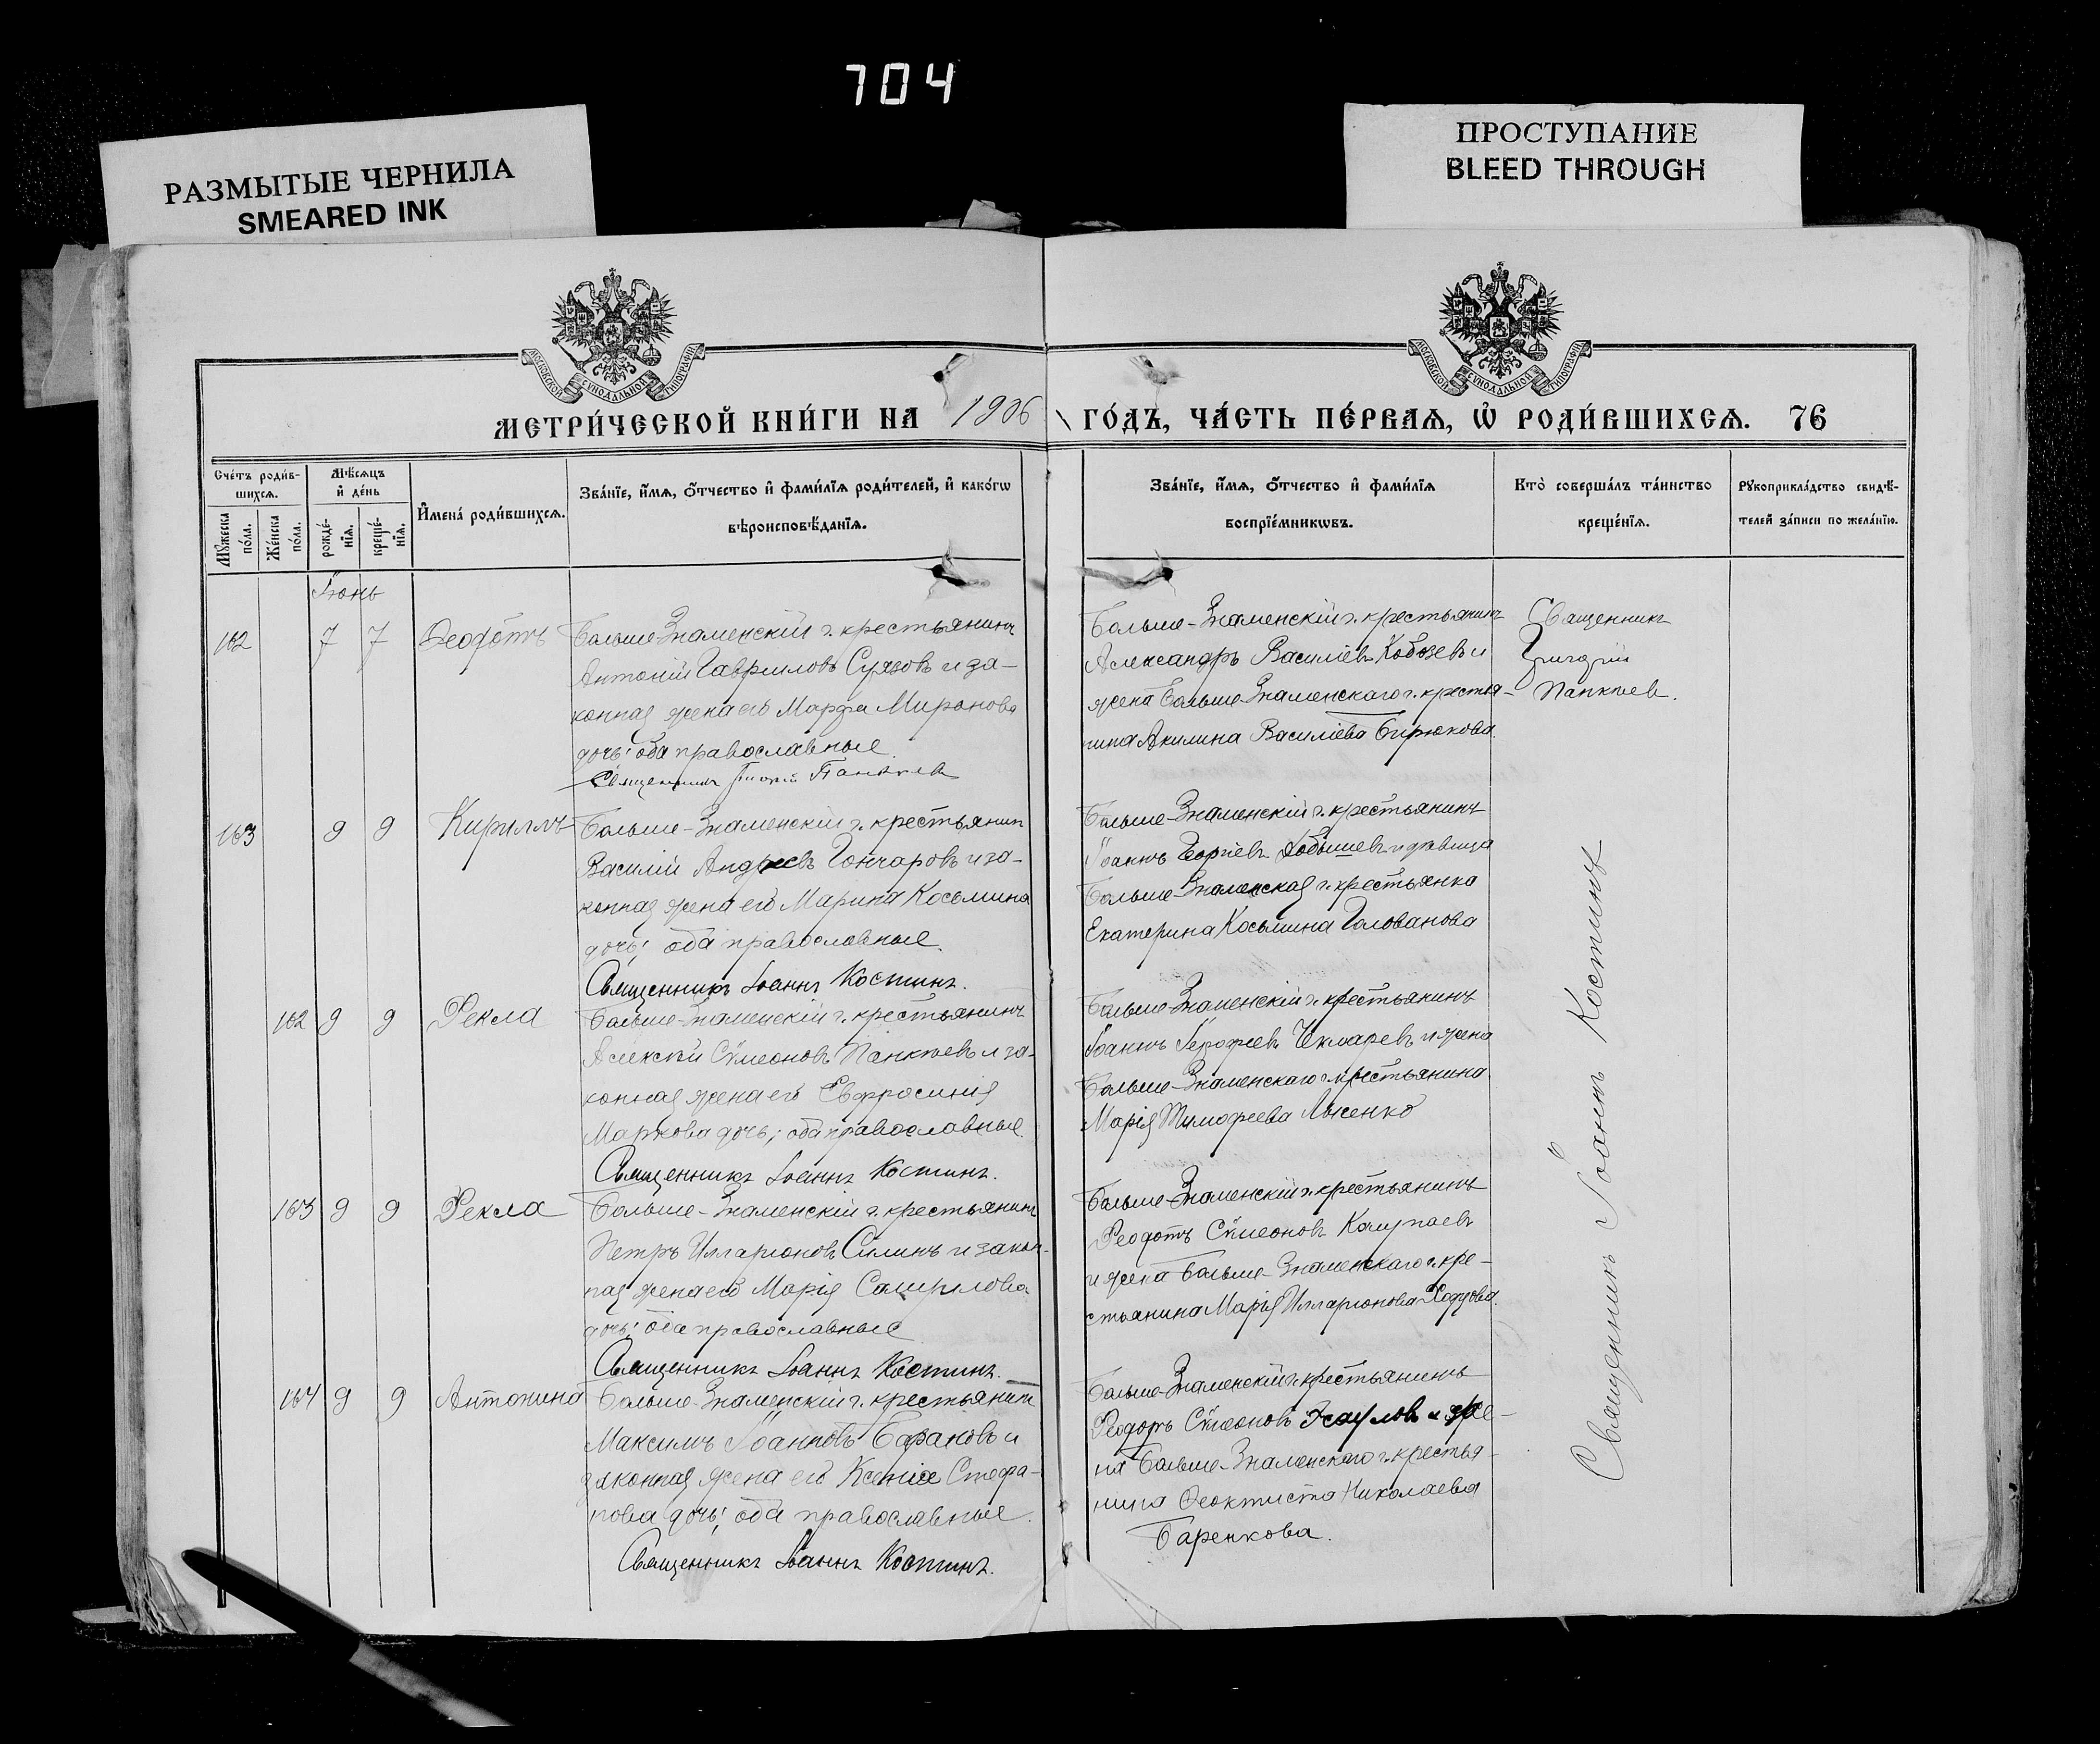 704
РАЗМЫТЫЕ ЧЕРНИЛА
SMEARED INK
ПРОСТУПАНИЕ
BLEED THROUGH
МОСКОВСКОЙ СѴНОДАЛЬНОЙ ТИПОГРАФІИ
МОСКОВСКОЙ СѴНОДАЛЬНОЙ ТИПОГРАФІИ
МЕТРИ́ЧЕСКОЙ КНИ́ГИ НА 1906 ГО́ДЪ, ЧА́СТЬ ПЕ́РВАѦ, Ѡ҆ РОДИ́ВШИХСѦ. 76
Сче́тъ роди́в-
шихсѧ.
Мꙋ́жеска по́ла.
Же́нска по́ла.
Мѣ́сѧцъ
и҆ де́нь
рожде́-
нїѧ.
креще́-
нїѧ.
И҆мена́ роди́вшихсѧ.
Зва́нїе, и҆́мѧ, о҆́тчество и҆ фами́лїѧ роди́телей, и҆ како́гѡ
вѣроисповѣ́данїѧ.
Зва́нїе, и҆́мѧ, о҆́тчество и҆ фами́лїѧ
воспрїе́мникѡвъ.
Кто̀ соверша́лъ та́инство
креще́нїѧ.
Рꙋкоприкла́дство свидѣ́-
телей за́писи по жела́нїю.
Іюнь
162 7 7 Ѳеодотъ
Больше-Знаменскій г. крестьянинъ
Антоній Гавриловъ Суязовъ и за-
конная жена его Марфа Миронова
дочь; оба православные
Священникъ Панкеев
Больше-Знаменскій г. крестьянинъ
Александръ Василіевъ Кобозевъ и
жена Больше-Знаменскаго г. крестья-
нина Акилина Василіева Бирюкова.
Священникъ
Григорій
Панкеев.
163 9 9 Кириллъ
Больше-Знаменскій г. крестьянин
Василій Андреевъ Гончаровъ и за-
конная жена его Марина Косьмина
дочь; оба православные.
Священникъ Іоаннъ Костинъ.
Больше-Знаменскій г. крестьянинъ
Іоаннъ и дѣвица
Больше-Знаменская г. крестьянка
Екатерина Косьмина Голованова
162 9 9 Ѳекла
Больше-Знаменскій г. крестьянинъ
Алексѣй Сѵмеоновъ Панкеевъ и за-
конная жена его Евфросинія
Маркова дочь; оба православные.
Священникъ Іоаннъ Костинъ.
Больше-Знаменскій г. крестьянинъ
Іоаннъ Чекмаревъ и жена
Больше-Знаменскаго г. крестьянина
Марія Тимофеева Лысенко
163 9 9 Ѳекла
Больше-Знаменскій г. крестьянинъ
Петръ Илларіоновъ Силинъ и закон-
ная жена его Марія
дочь; оба православные
Священникъ Іоаннъ Костинъ.
Больше-Знаменскій г. крестьянинъ
Ѳеодотъ Сѵмеоновъ
и жена Больше-Знаменскаго г. кре-
стьянина Марія Илларіонова
164 9 9 Антонина
Больше-Знаменскій г. крестьянинъ
Максимъ Іоанновъ Барановъ и
законная жена его Ксенія Стефа-
нова дочь; оба православные.
Священникъ Іоаннъ Костинъ.
Больше-Знаменскій г. крестьянинъ
Ѳеодоръ Сѵмеоновъ и же-
на Больше-Знаменскаго г. крестья-
нина Ѳеоктиста Николаева
Баренкова.
Священникъ Іоаннъ Костинъ